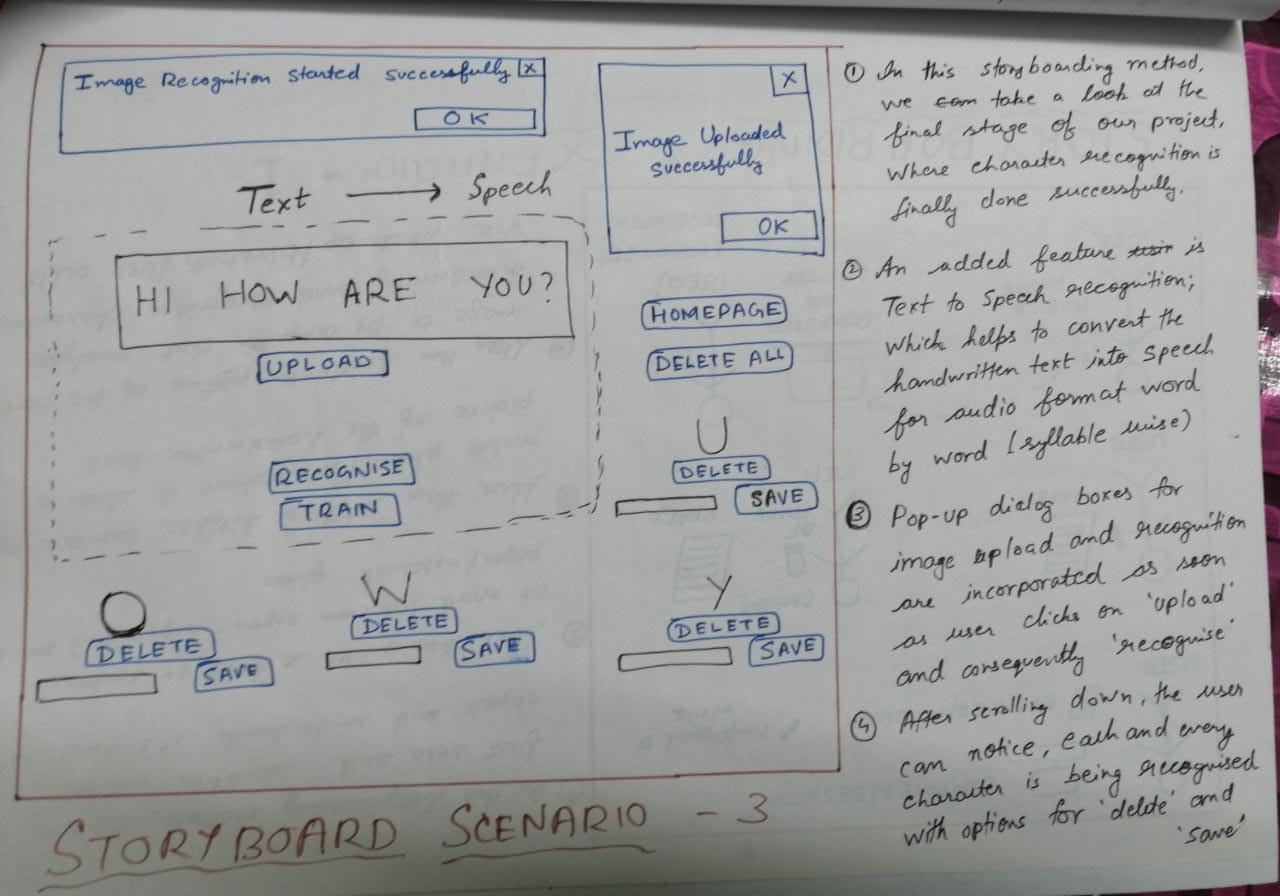 Image Recognition Started Successfully X
OK
X
Image Uploaded
Successfully
OK
Text → Speech
HI HOW ARE YOU?
UPLOAD
RECOGNISE
TRAIN
HOMEPAGE
DELETE ALL
U
DELETE
SAVE
O
DELETE
SAVE
W
DELETE
SAVE
Y
DELETE
SAVE
STORYBOARD SCENARIO - 3
① In this storyboarding method,
we can take a look at the
final stage of our project,
Where character recognition is
finally done successfully.
② An added feature is
Text to Speech recognition;
which helps to convert the
handwritten text into speech
for audio format word
by word (syllable wise)
③ Pop-up dialog boxes for
image upload and recognition
are incorporated as soon
as user clicks on 'upload'
and consequently 'recognise'
④ After scrolling down, the user
can notice, each and every
character is being recognised
with options for 'delete' and
'save'